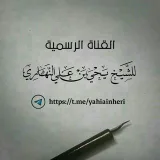 القناة الرسمية
للشيخ يحيى بن علي النهاري
https://t.me/yahiainheri